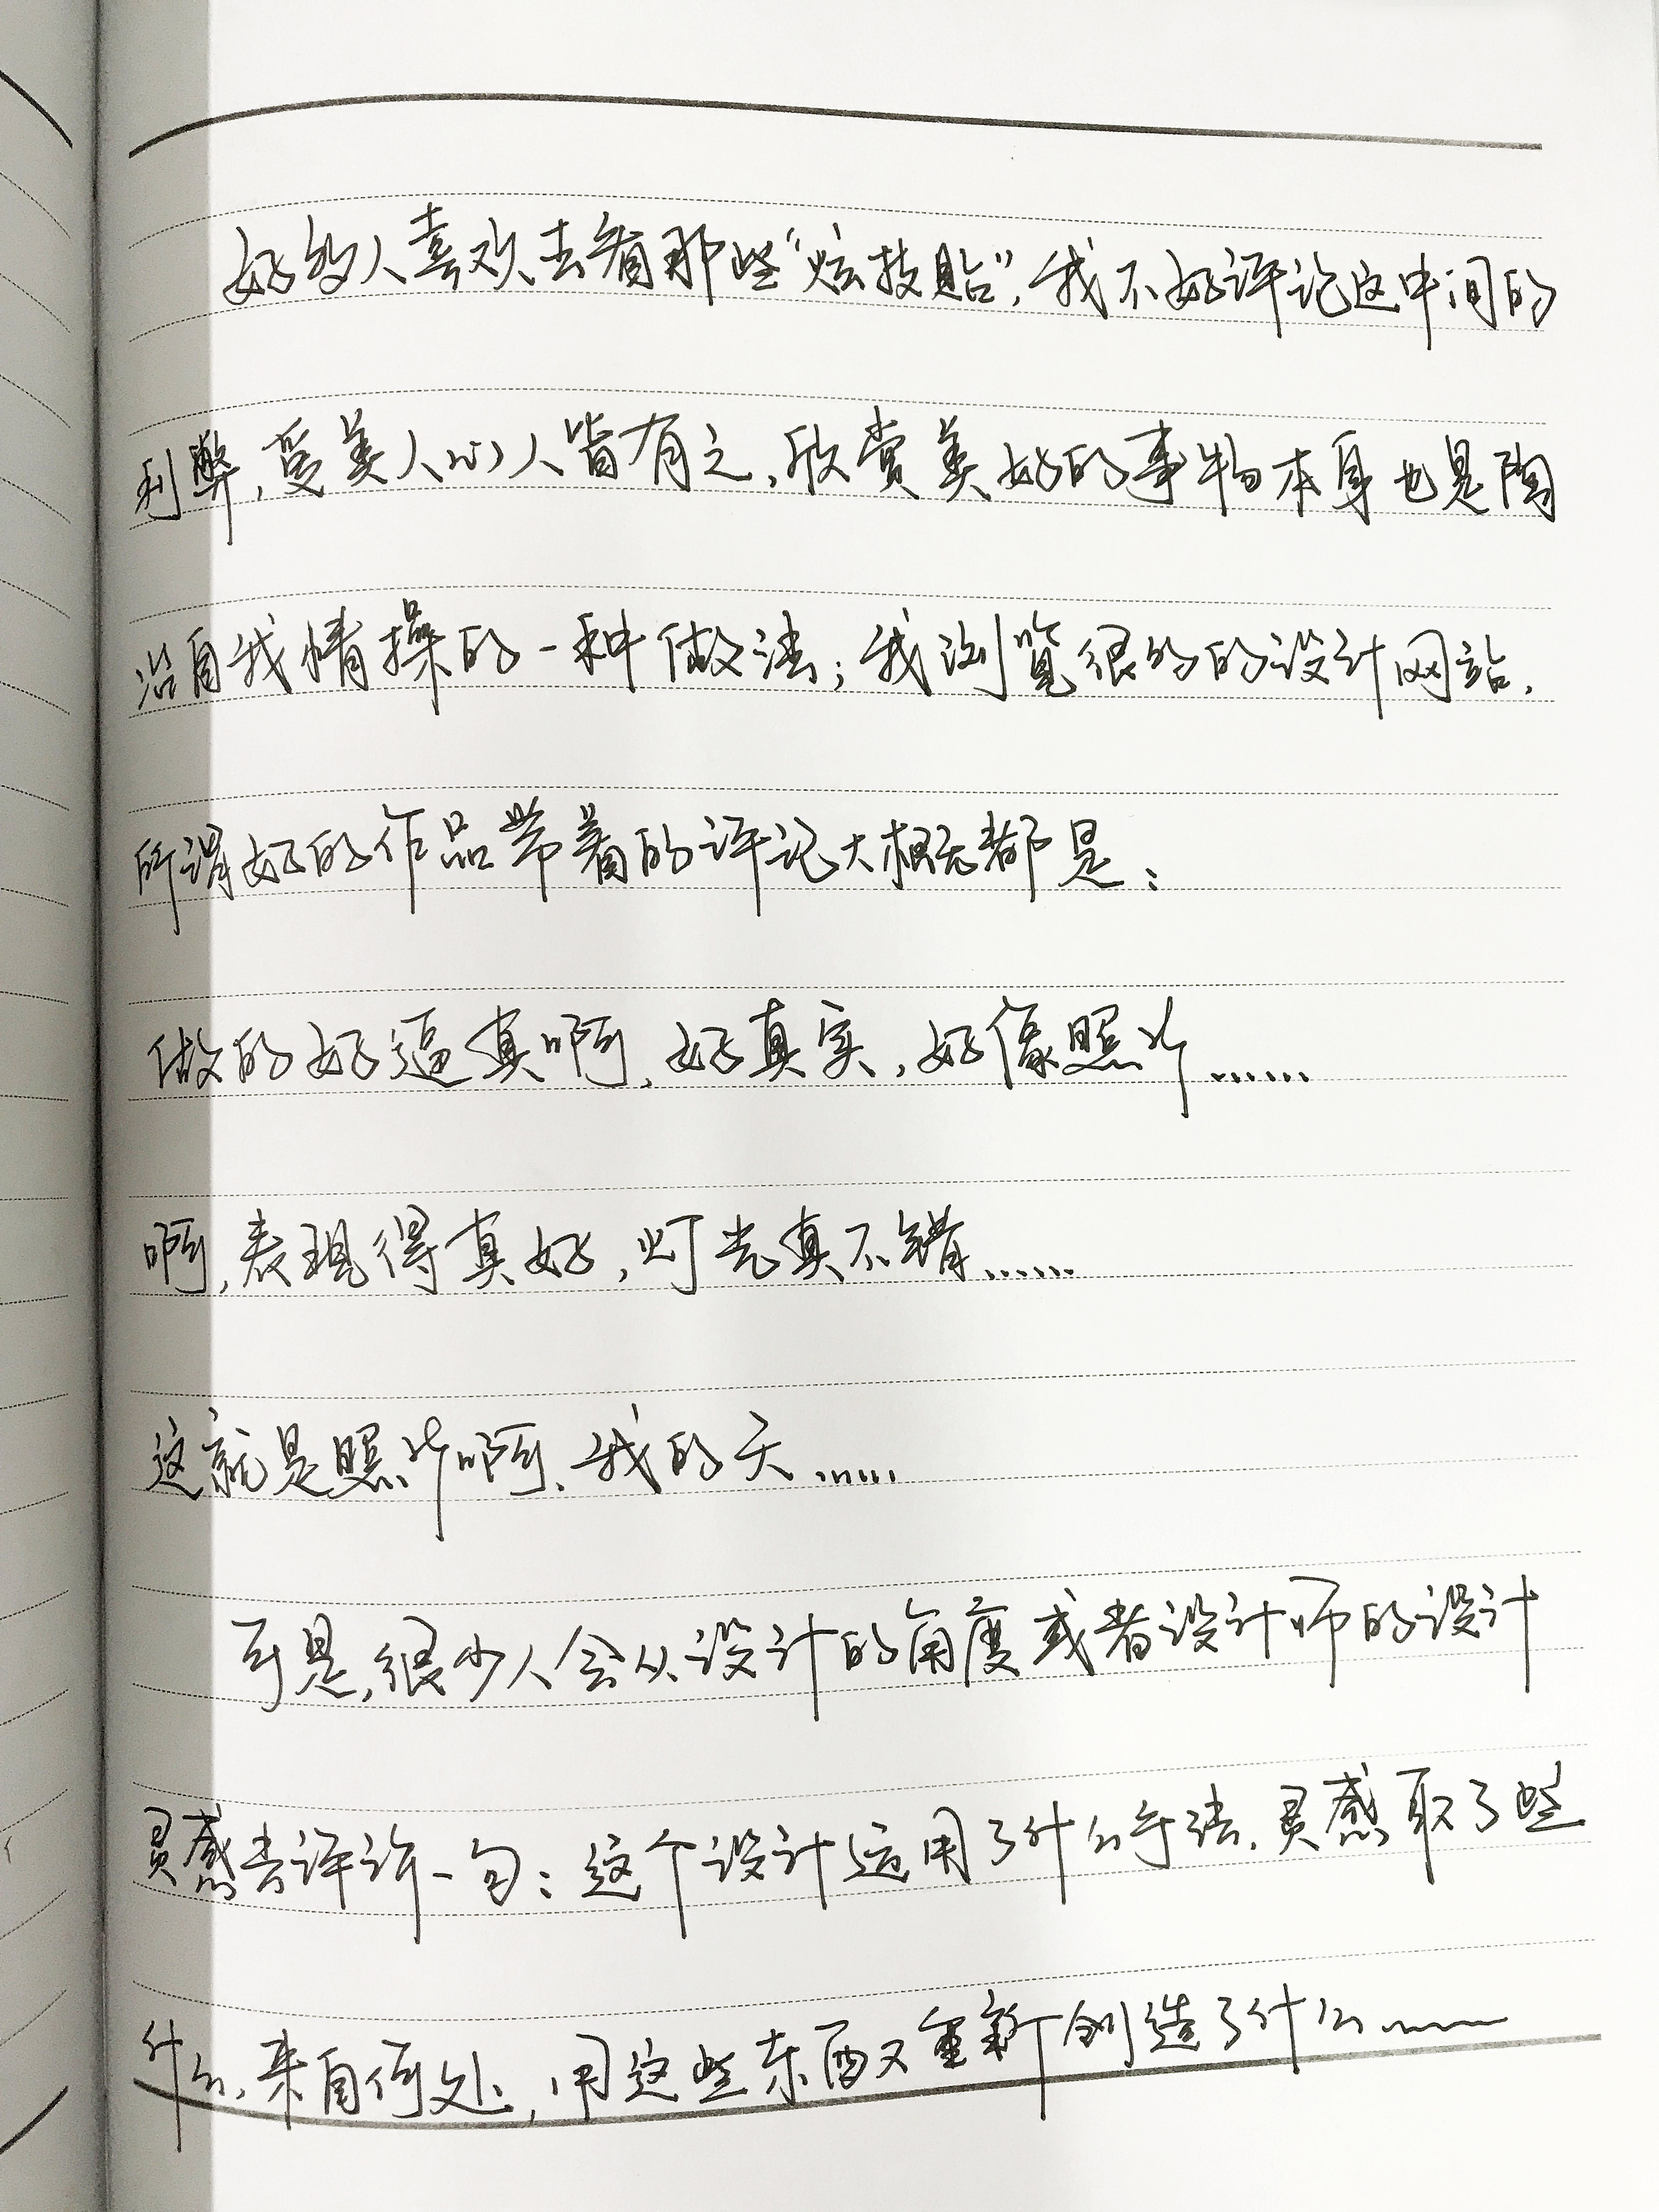 好多人喜欢去看那些“炫技贴”，我不好评论这中间的
利弊，爱美人心人皆有之，欣赏美好的事物本身也是陶
冶自我情操的一种做法；我浏览很多的设计网站，
所谓好的作品带着的评论大概都是：
做的好逼真啊，好真实，好像照片……
啊，表现得真好，灯光真不错……
这就是照片啊，我的天……
可是，很少人会从设计的角度或者设计师的设计
灵感去评许一句：这个设计运用了什么手法，灵感取了些
什么，来自何处，用这些东西又重新创造了什么……